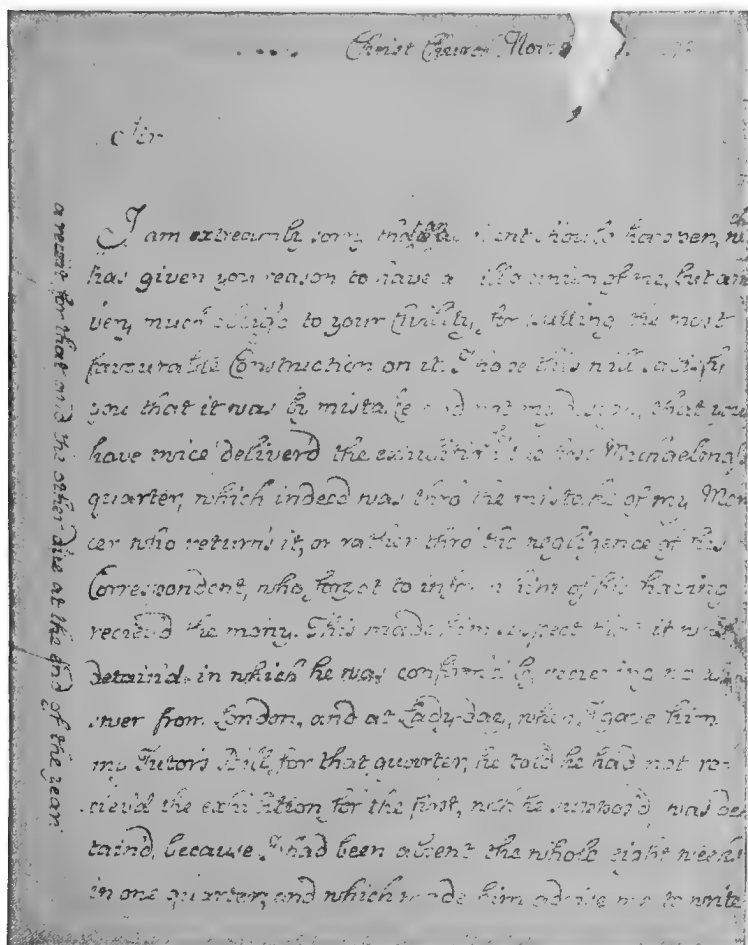 Christ Church Nov
Sir
I am extreamly sorry that should happen, wch
has given you reason to have a ill opinion of me, but am
very much oblig'd to your Civility, for putting the most
favourable Construction on it. I hope this will satisfy
you that it was by mistake and not my design, that you
have twice deliver'd the exhibition the
quarter, which indeed was thro the mistake of my Mer
cer who returns it, or rather thro the negligence of his
Correspondent, who forgot to inform him of his having
reciev'd the mony. This made him suspect that it was
detain'd, in which he was confirm'd by recieving no an
swer from London, and at Lady-day, when I gave him
my Tutor's Bill for that quarter, he told he had not re-
ciev'd the exhibition for the first, wch he suppos'd was de
tain'd, because I had been absent the whole eight weeks
in one quarter, and which made him advise me to write
a receit for that and the other due at the end of the year